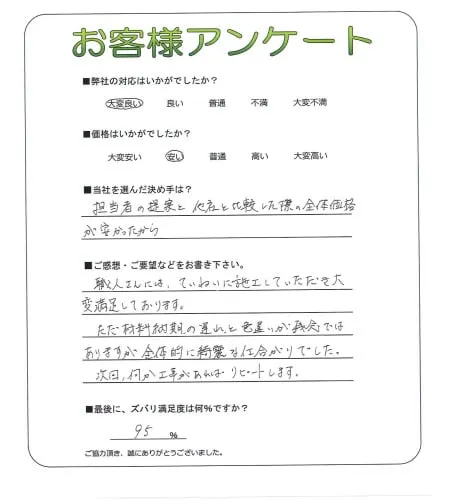 お客様アンケート
■弊社の対応はいかがでしたか？
大変良い 良い 普通 不満 大変不満
■価格はいかがでしたか？
大変安い 安い 普通 高い 大変高い
■当社を選んだ決め手は？
担当者の提案と 他店と比較した際の全体価格
が安かったから
■ご感想・ご要望などをお書き下さい。
職人さんには、ていねいに施工していただき大
変満足しております。
ただ材料納期の遅れと色違いが残念では
ありますが全体的に綺麗な仕上がりでした。
次回、何か工事があれば リピートします。
■最後に、ズバリ満足度は何％ですか？
95 ％
ご協力頂き、誠にありがとうございました。